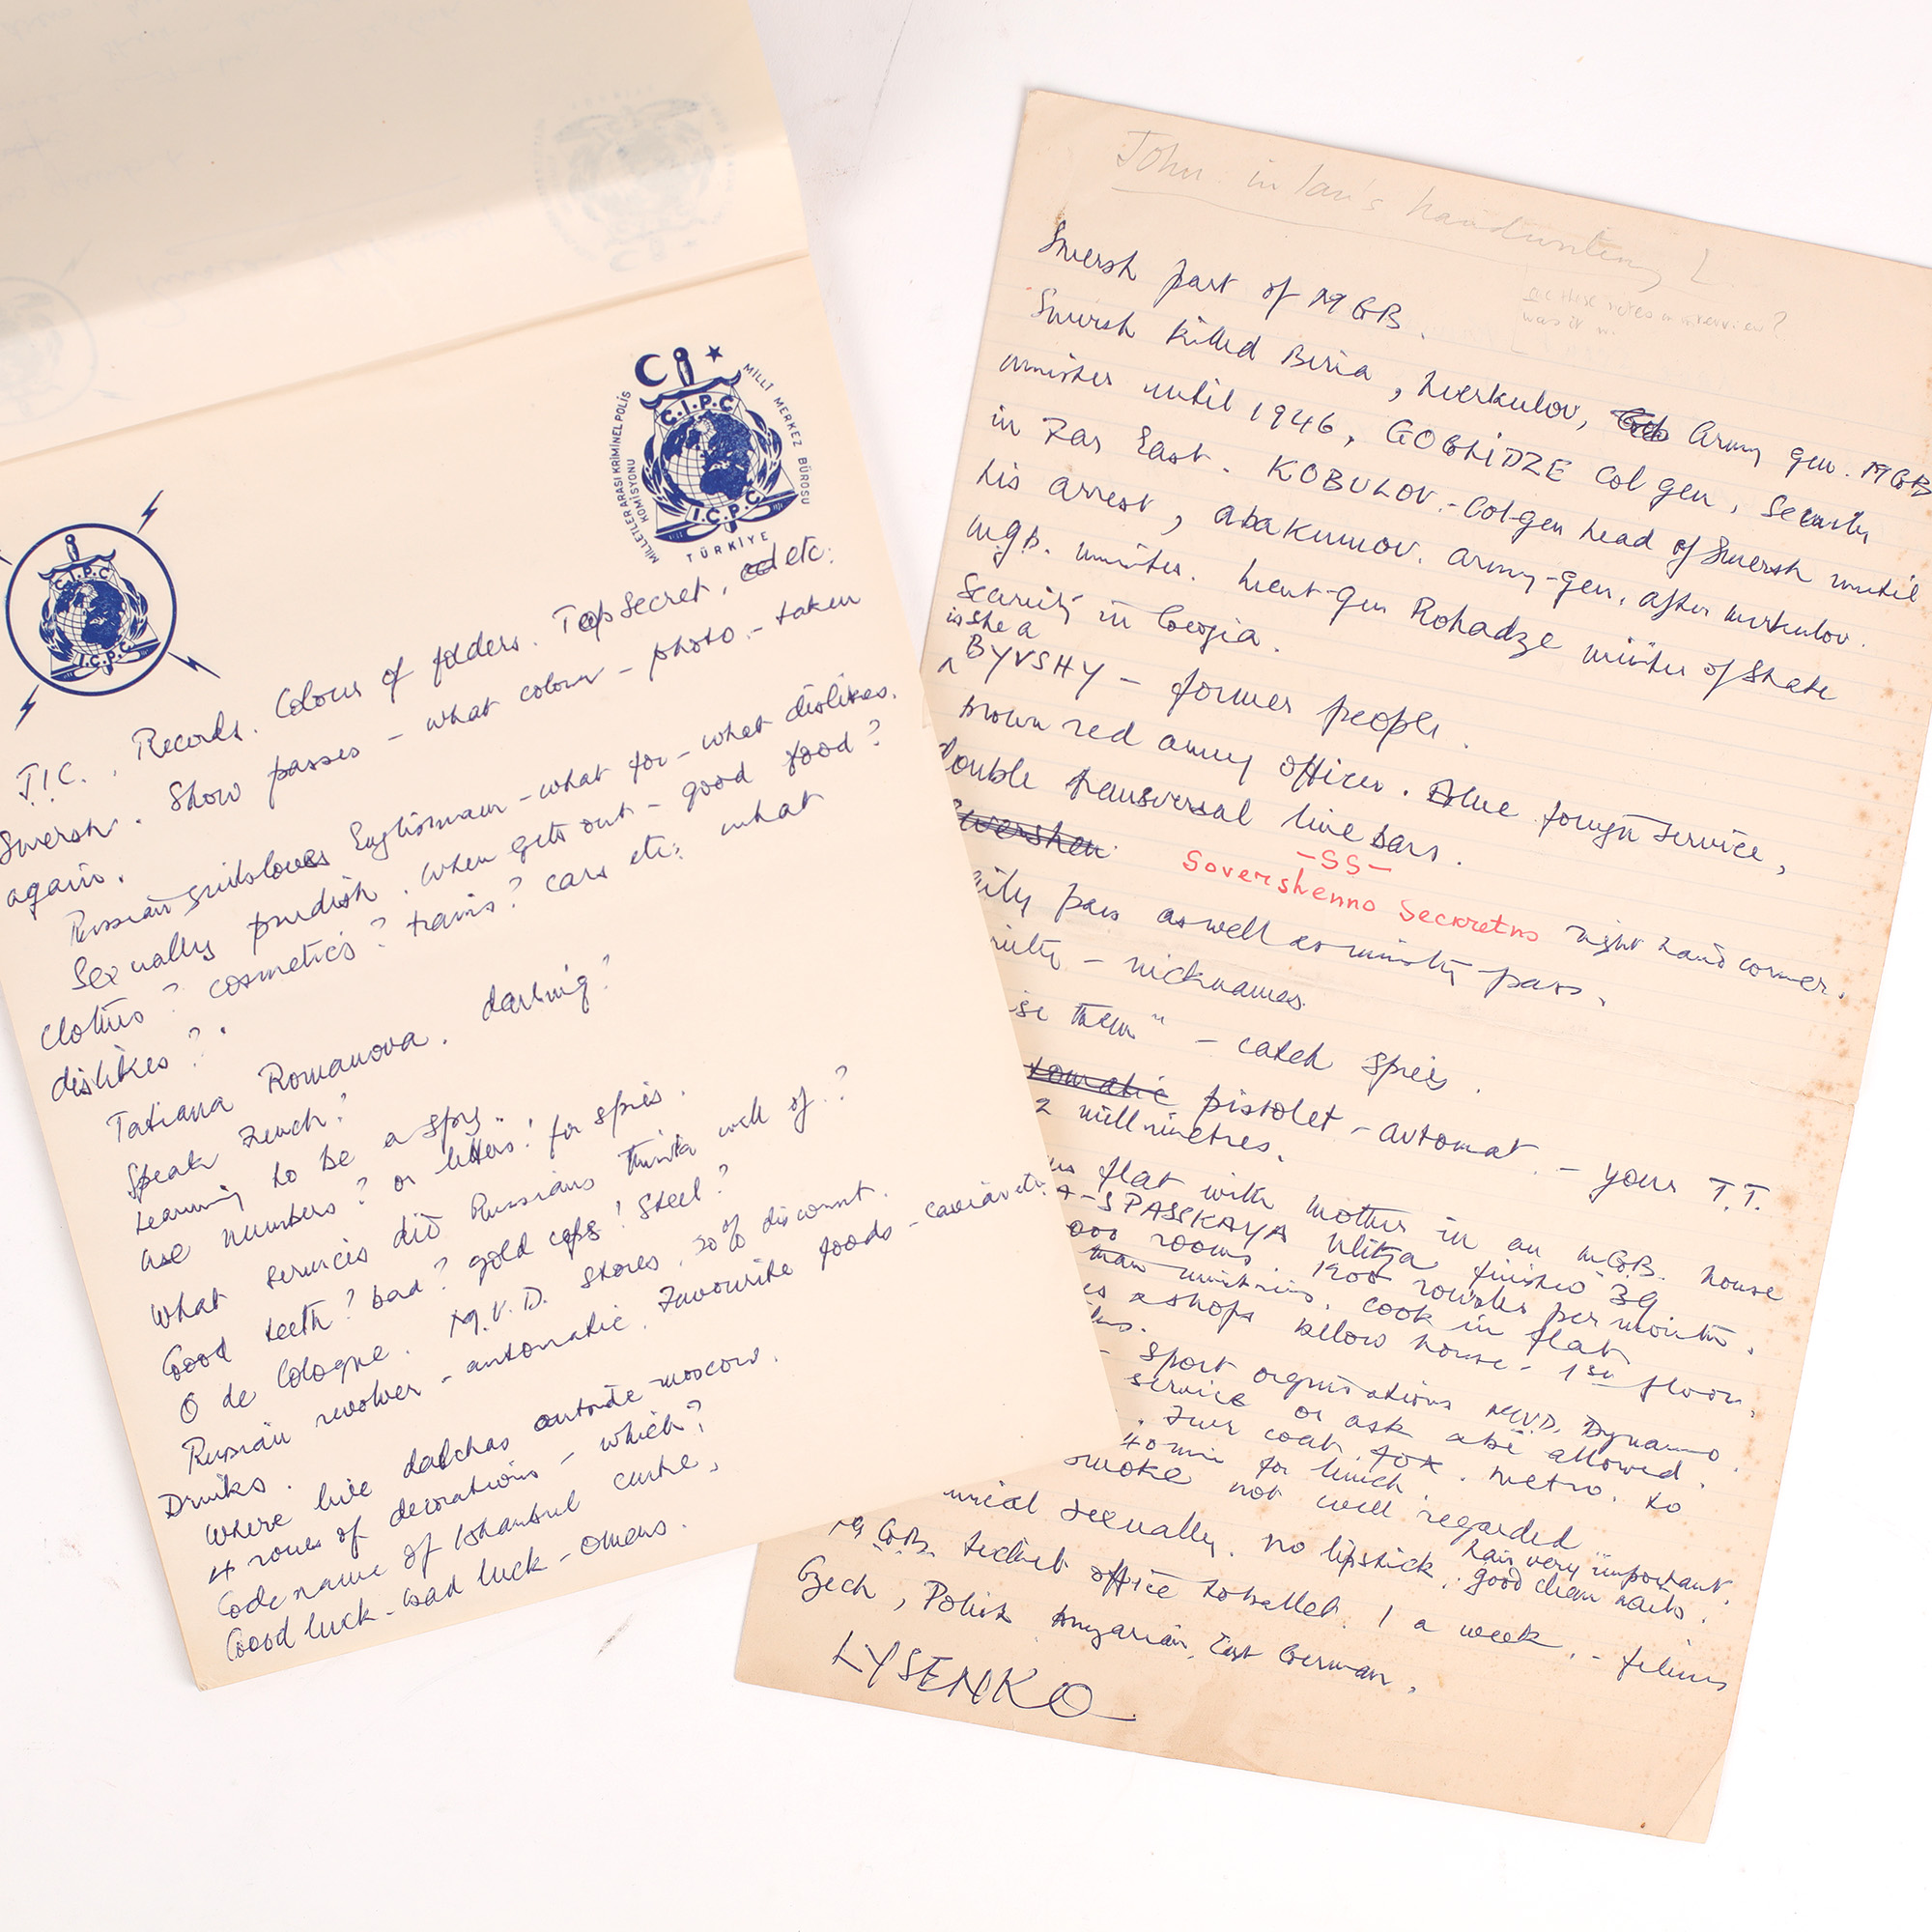 MİLLETLER ARASI KRİMİNEL POLİS
KOMİSYONU
MİLLİ MERKEZ BÜROSU
TÜRKİYE
C.I.P.C
I.C.P.C
C.I.P.C
I.C.P.C
Records. Colour of folders. Top Secret, etc.
Smersh. Show passes - what colour - photo - taken
again.
Russian girls loves Englishman - what for - what dislikes.
Sexually prudish. When gets out - good food?
Clothes? cosmetics? trains? cars etc: what
dislikes?
Tatiana Romanova. darling?
Speak French?
Learning to be a spy.
use numbers? or letters! for spies.
What services did Russians think well of?
Good teeth? bad? gold caps! steel?
O de Cologne. M.V.D. Stores 20% discount.
Russian revolver - automatic. Favourite foods - caviar etc.
Drinks.
Where live datchas outside moscow.
4 rows of decorations - which?
Code name of Istanbul centre,
Good luck - bad luck - omens.
John: in Ian's handwriting
Smersh part of MGB.
Smersh killed Beria, Merkulov, Army gen. MGB
minister until 1946, GOGLIDZE Col gen, Security
in Far East. KOBULOV - Col-gen head of Smersh until
his arrest, abakumov. army-gen, after Merkulov.
m.g.b. minister. Lieut-gen Rohadze minister of State
Security in Georgia.
is she a
BYVSHY - former people.
brown red army officer. Blue foreign service,
double transversal line bars.
-SS-
Sovershenno Seckretno right hand corner.
pass aswell as ministry pass.
- nicknames.
them" - catch spies.
pistolet - automat. - your T.T.
2 millnietres.
flat with mother in an M.G.B. house
A-SPASSKAYA Ulitza finished 39
000 rooms. 1200 roubles per month.
cook in flat
shops below house - 1st floor.
- sport orgnisations MVD. Dynamo.
service or ask abt allowed.
Fur coat fox. metro. to
40 min for lunch.
smoke not well regarded
sexually. no lipstick. hair very important.
good clean nails.
M.G.B. ticket office to ballet. 1 a week. - films
Czech, Polish Hungarian, East German.
LYSENKO